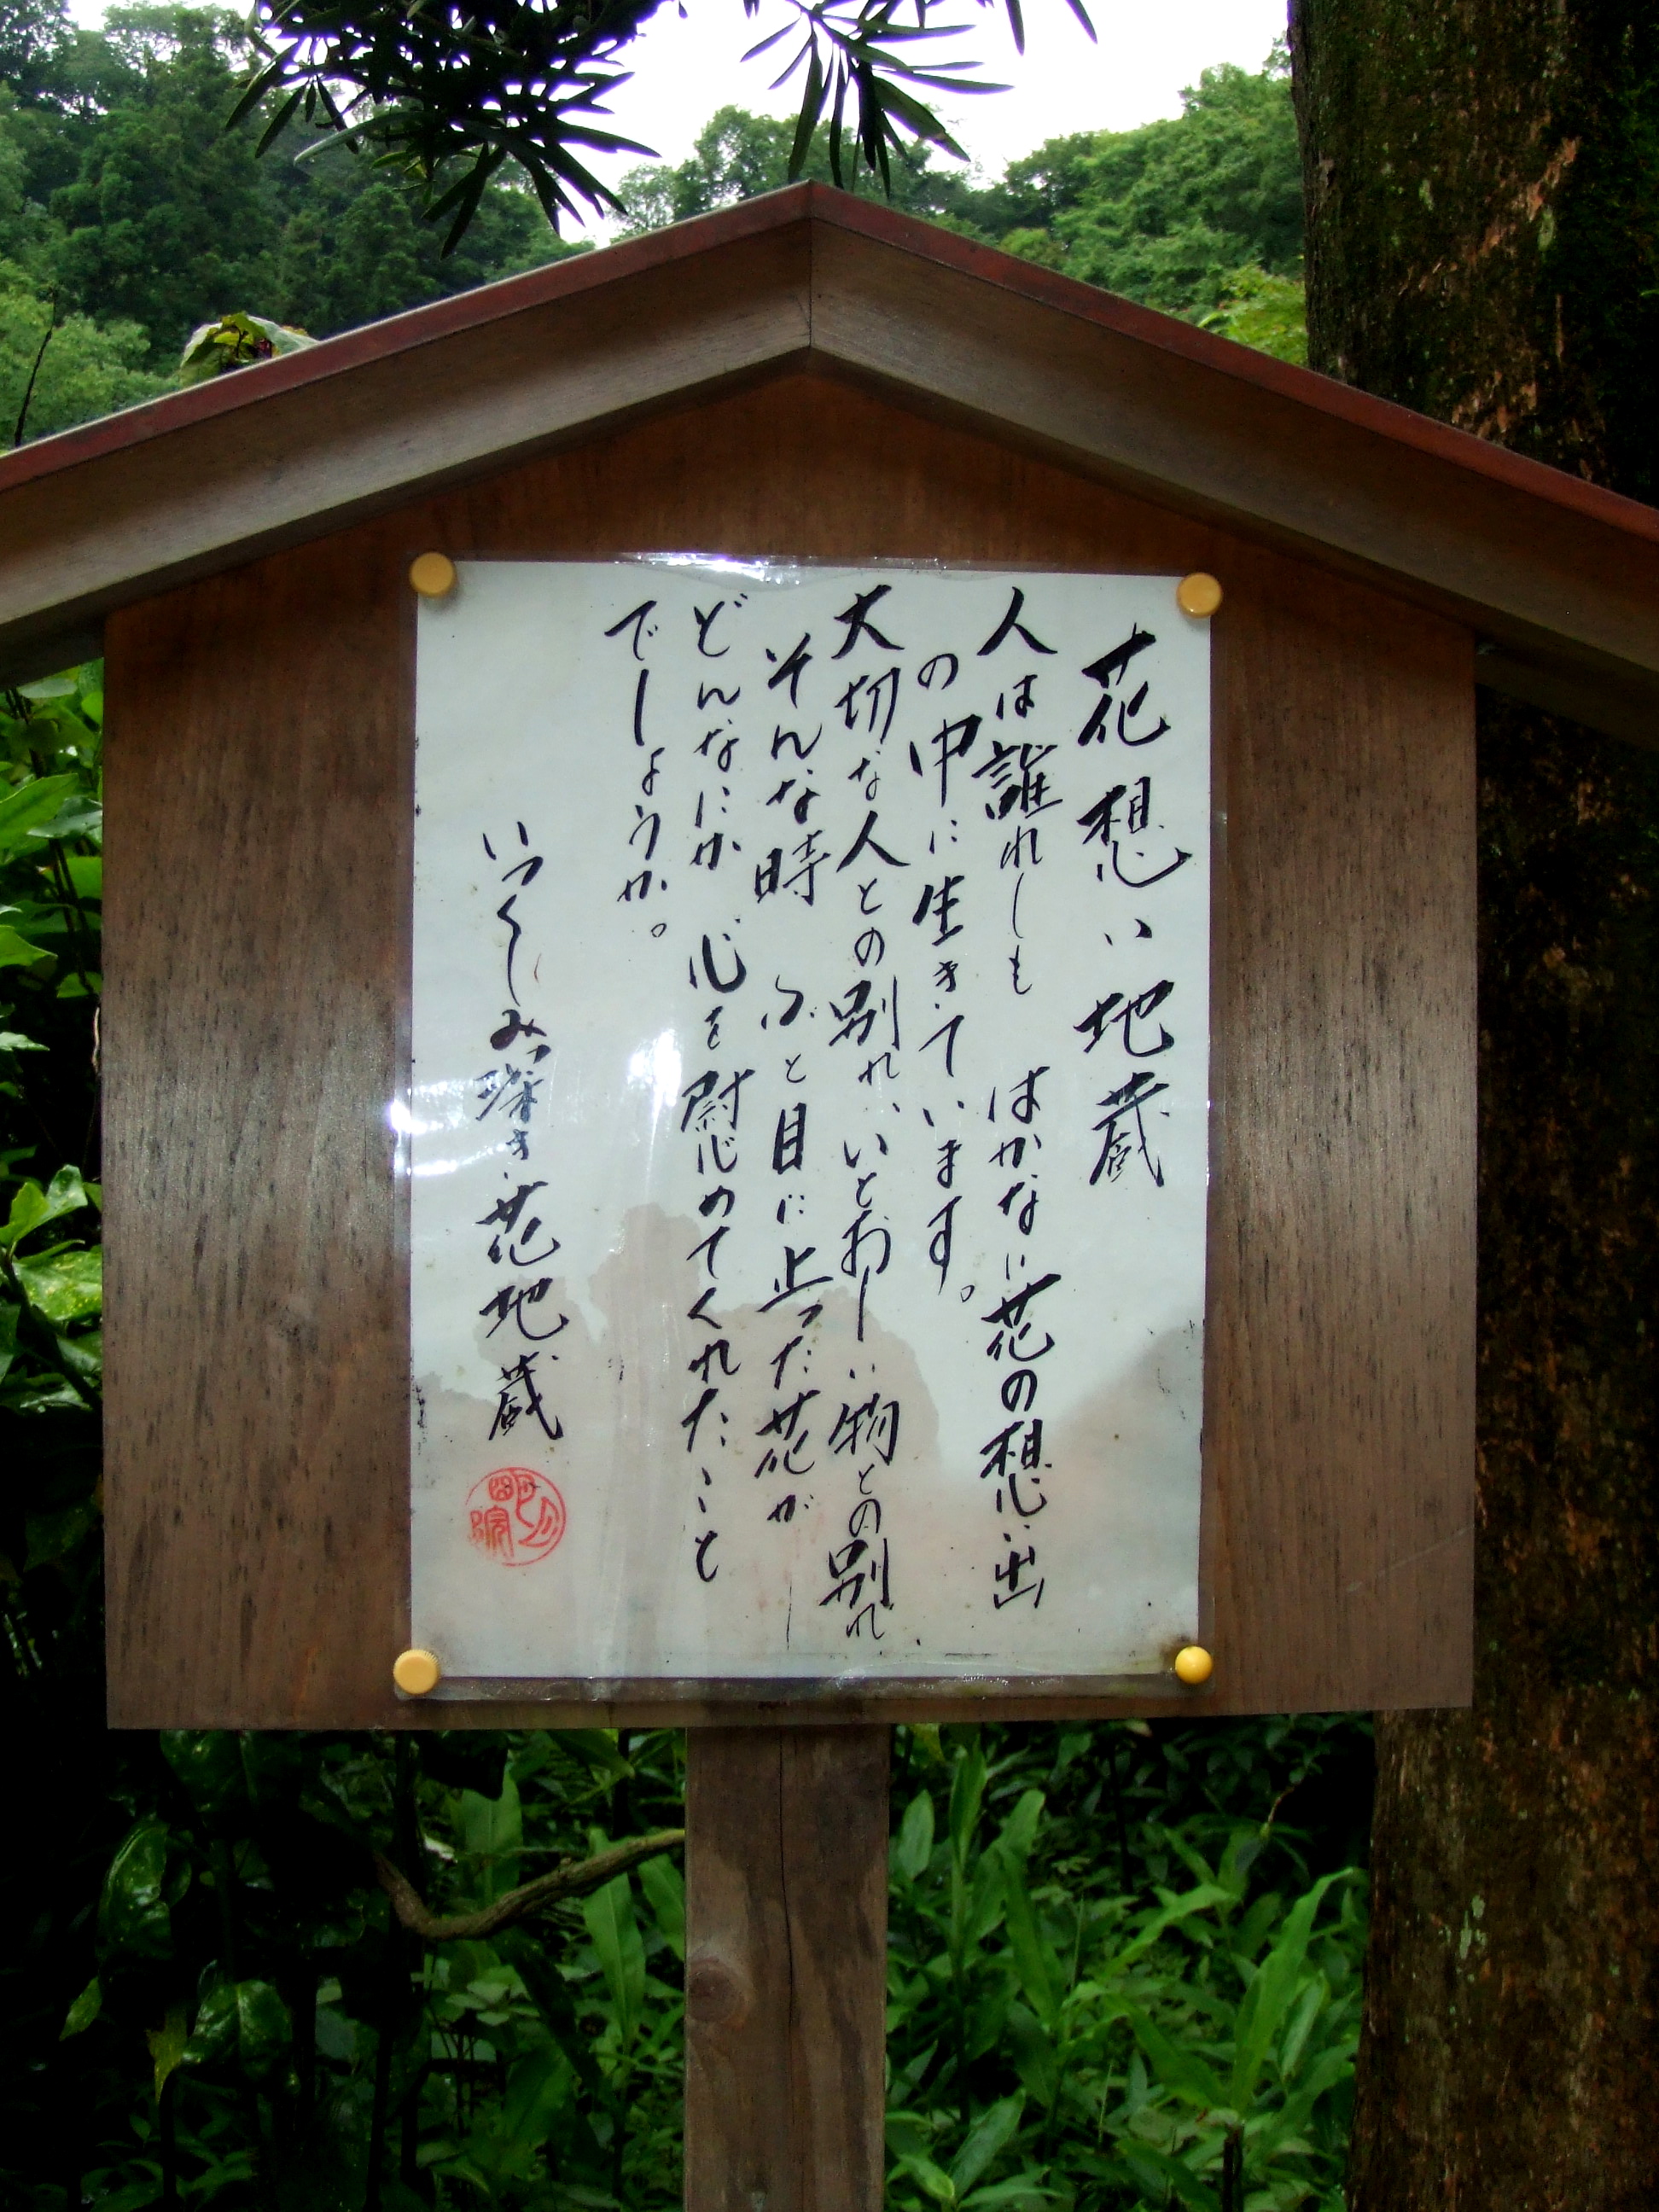 花想い地蔵
人は誰れしも　はかない花の想い出
の中に生きています。
大切な人との別れ、いとおしい物との別れ
そんな時　ふと目に止った花が
どんなにか　心を慰めてくれたことでしょうか。
いつくしみ深き花地蔵